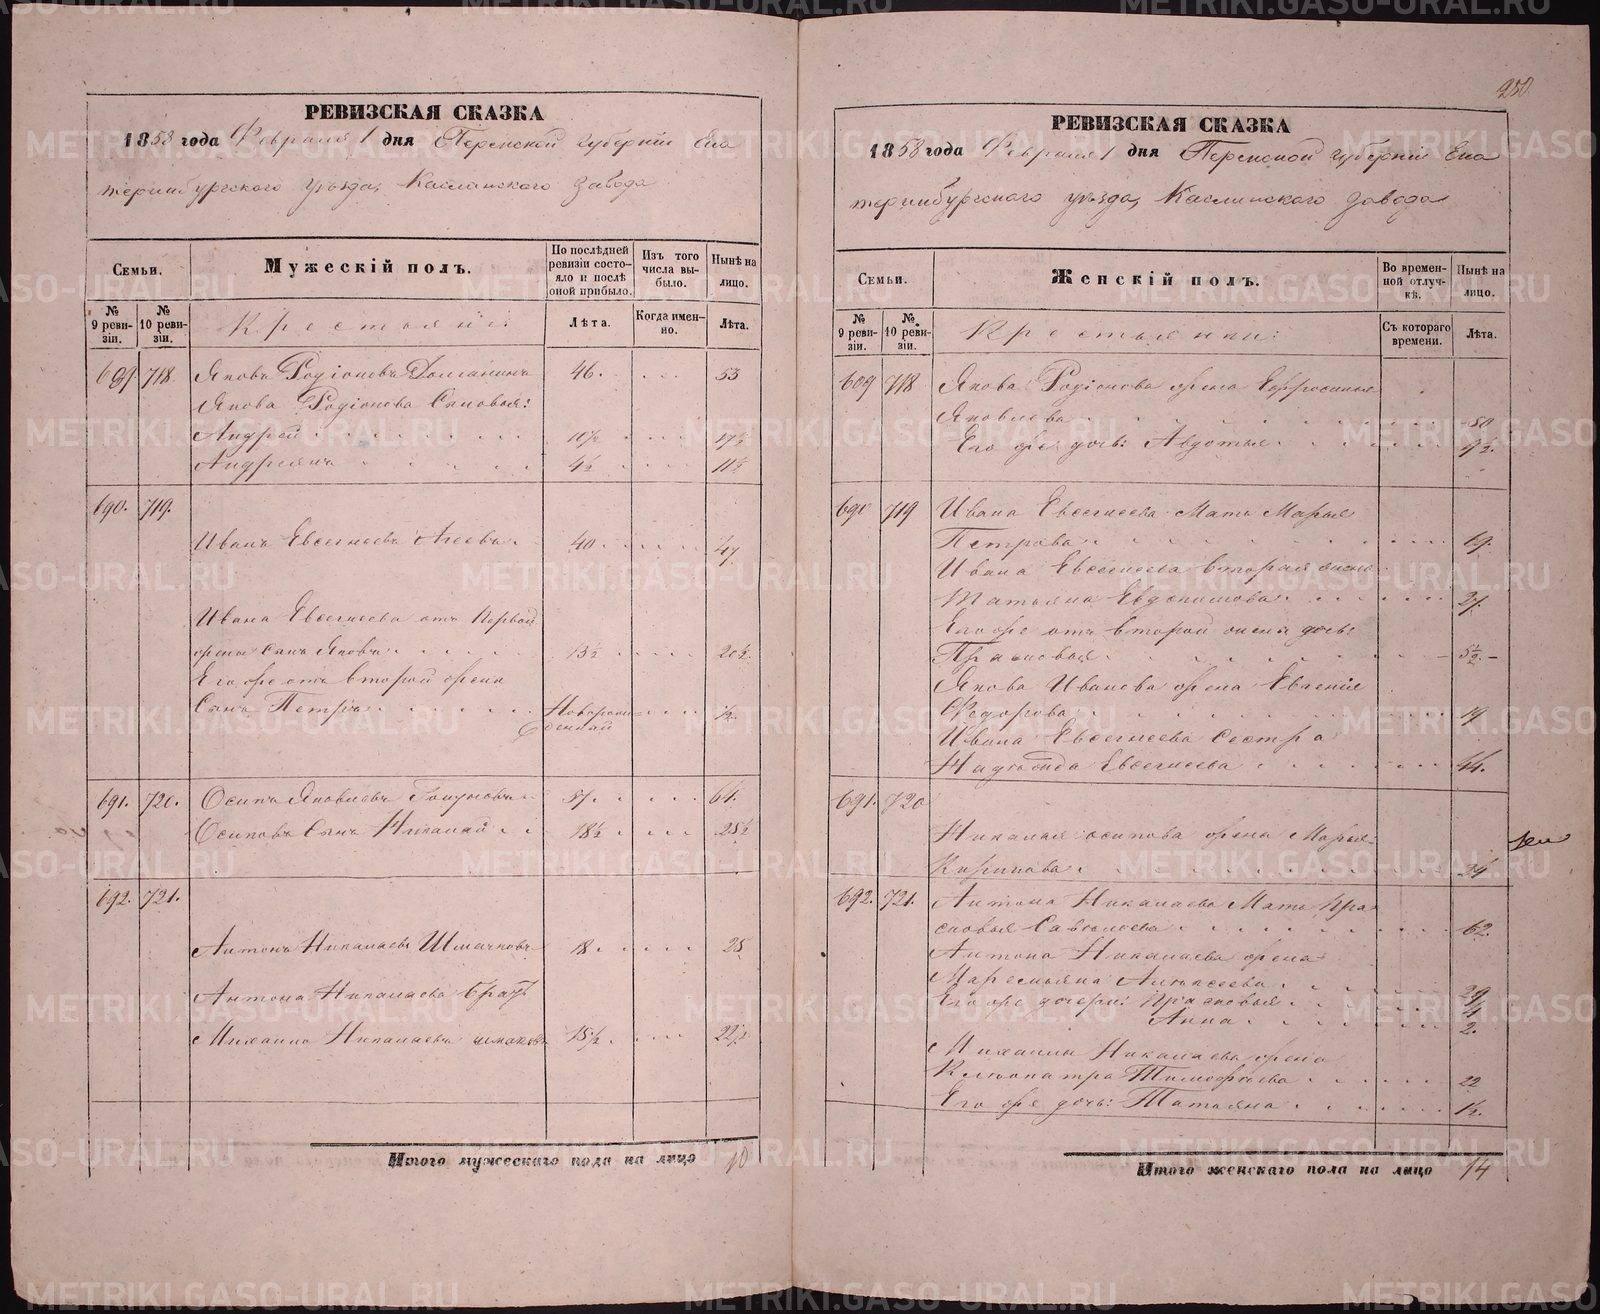 РЕВИЗСКАЯ СКАЗКА
1858 года Февраля 1 дня Пермской губернiи Ека
теринбургского уѣзда, Каслинского завода
Семьи.
Мужескiй полъ.
По послѣдней ревизiи состояло и послѣ оной прибыло.
Изъ того числа выбыло.
Нынѣ на лицо.
№ 9 ревизiи.
№ 10 ревизiи.
Крестьяне:
Лѣта.
Когда именно.
Лѣта.
689 718 Яковъ Родiоновъ 46. 53
Якова Родiонова Сыновья:
Андрей 10½ 17½
Андреянъ 4½ 11½
690. 719.
Иванъ Евсегнеевъ Агеевъ 40 47
Ивана Евсегнеева отъ Первой
жены Сынъ Яковъ 13½ 20½
Его же отъ второй жены
Сынъ Петръ Новорож
денный ½
691. 720. Осипъ Яковлевъ 57 64.
Осиповъ Сынъ Николай 18½ 25½
692. 721.
Антонъ Николаевъ Шмачковъ 18 25
Антона Николаева братъ
Михайло Николаевъ 15½ 22½
Итого мужескаго пола на лицо 10
250
РЕВИЗСКАЯ СКАЗКА
1858 года Февраля 1 дня Пермской губернiи Ека
теринбургского уѣзда, Каслинского завода
Семьи.
Женскiй полъ.
Во временной отлучкѣ.
Нынѣ на лицо.
№ 9 ревизiи.
№ 10 ревизiи.
Крестьянки:
Съ котораго времени.
Лѣта.
689 718 Якова Родiонова жена Ефросинья
Яковлева 50
Его же дочь: Авдотья 9½.
690 719 Ивана Евсегнеева Мать Марья
Петрова 69.
Ивана Евсегнеева вторая жена
Татьяна Евдокимова 27.
Его же отъ второй жены дочь:
Прасковья 5½
Якова Иванова жена Евгенiя
Федорова 19
Ивана Евсегнеева сестра
Надежда Евсегнеева 44.
691. 720
Николая осипова жена Марья
Карпова 24
692. 721. Антона Николаева Мать Пра
сковья Савельева 62.
Антона Николаева жена
Маремьяна Алексеева 29
Его же дочери: Прасковья 4
Анна 2.
Михаила Николаева жена
Клеопатра Тимофеева 22
Его же дочь: Татьяна ½.
Итого женскаго пола на лицо 14
METRIKI.GASO-URAL.RU